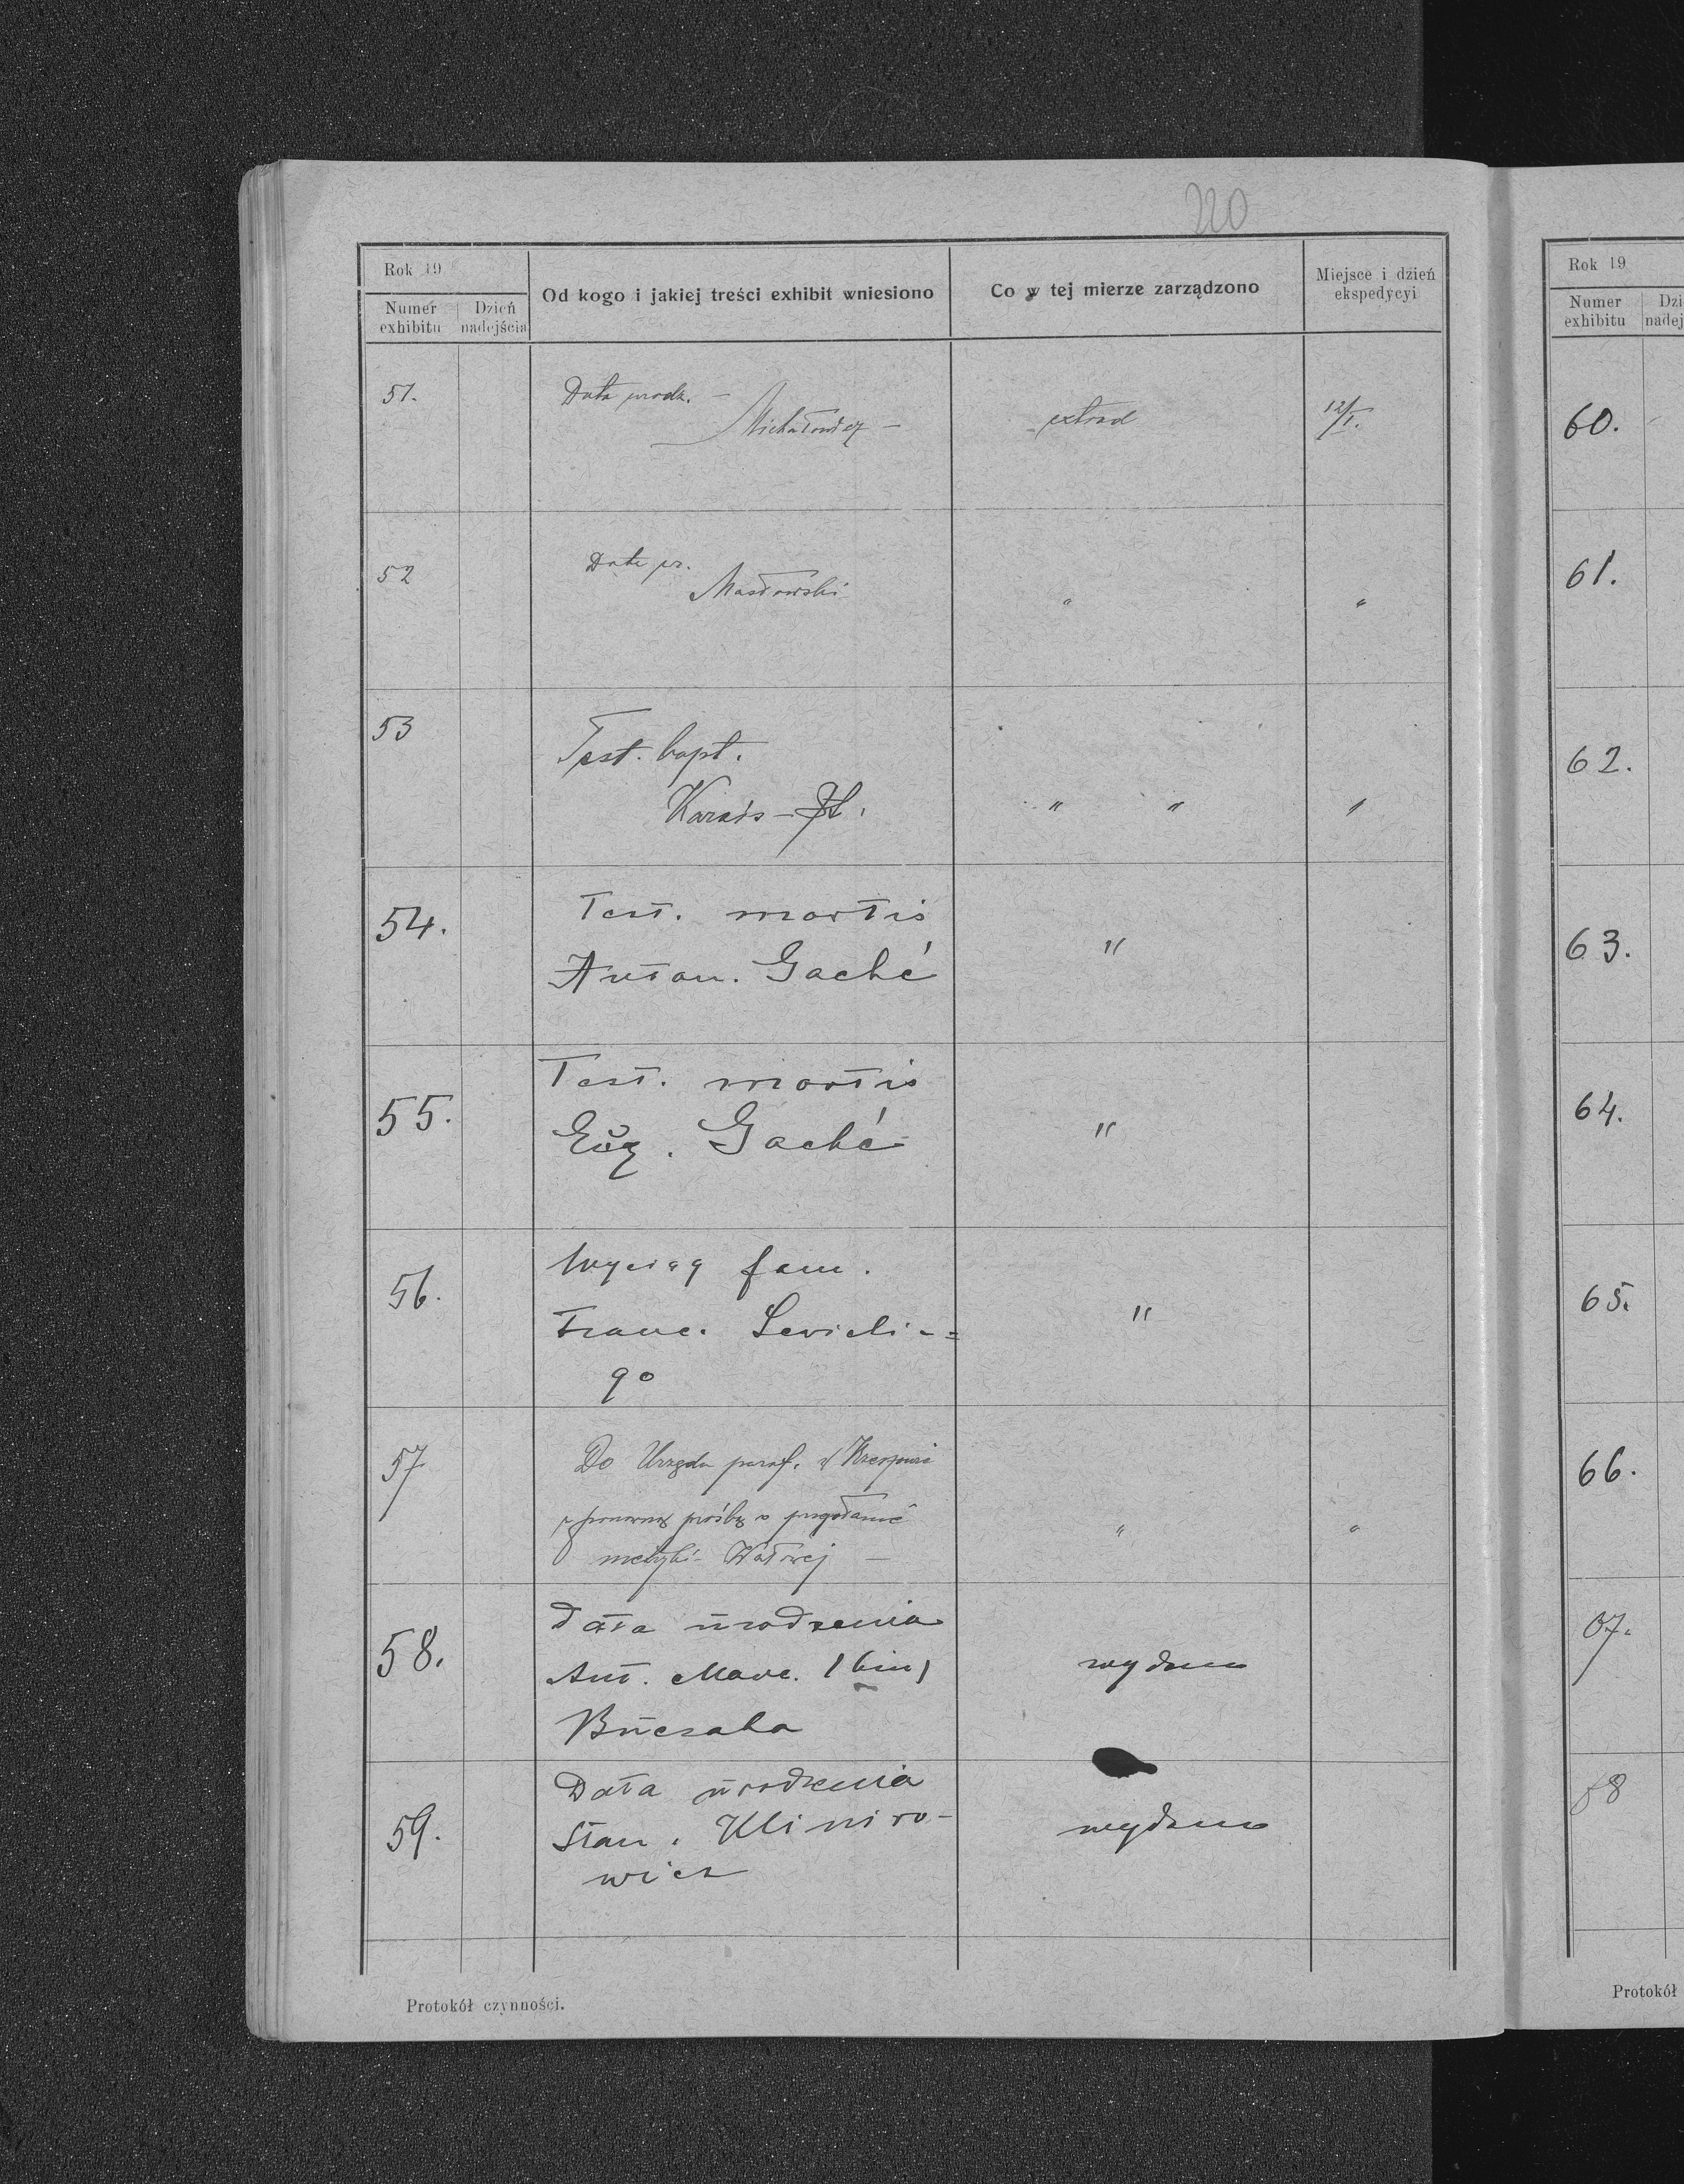 220
Rok 19
Numer exhibitu
Dzień nadejścia
Od kogo i jakiej treści exhibit wniesiono
Co w tej mierze zarządzono
Miejsce i dzień ekspedycyi
51. Data urodz. – extrad 12/I.
Michałowicz –
52 Data ur.
Masłowski " "
53 Test. bapt.
Karaś – " " "
54. Test. mortis "
Anton. Gaché
55. Test. mortis "
Eug. Gaché
56. Wyciąg fam.
Franc. "
go
57 Do Urzędu paraf. w
z ponowną prośbą o " "
metryki Wałowej –
58. Data urodzenia
Ant. Marc. (bin) wydano
Buczaka
59. Data urodzenia
Stan. Klimro- wydano
wicz
Protokół czynności.
Rok 19
Numer exhibitu
Dzi
nadej
60.
61.
62.
63.
64.
65.
66.
67.
68
Protokół